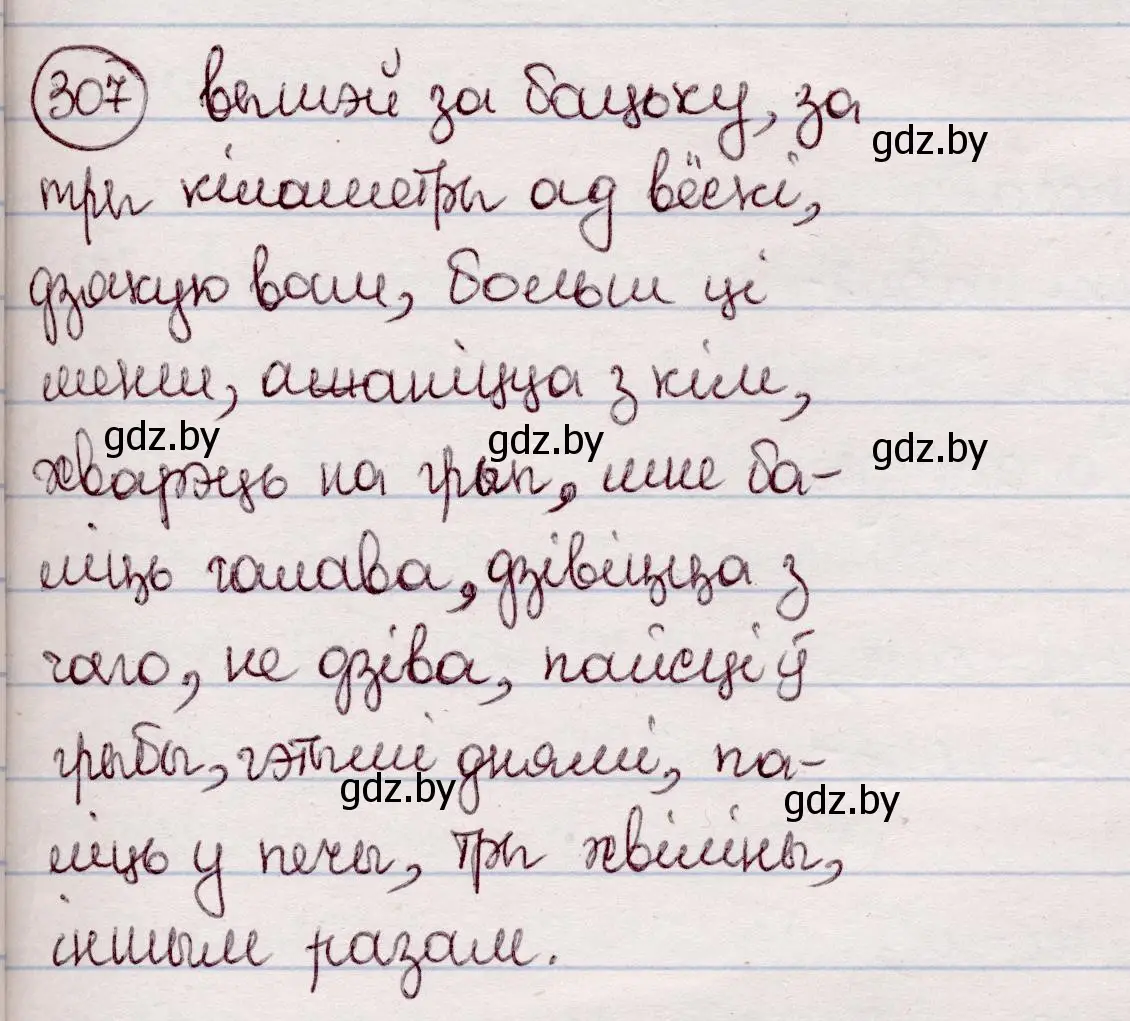 307 вышэй за бацьку, за
gdz.by
тры кіламетры ад вёскі,
дзякую вам, больш ці
менш, ажаніцца з кім,
gdz.by gdz.by gdz.by
хварэць на грып, мне ба-
ліць галава, дзівіцца з
чаго, не дзіва, пайсці ў
грыбы, гэтымі днямі, па-
gdz.by gdz.by
ліць у печы, тры хвіліны,
іншым разам.